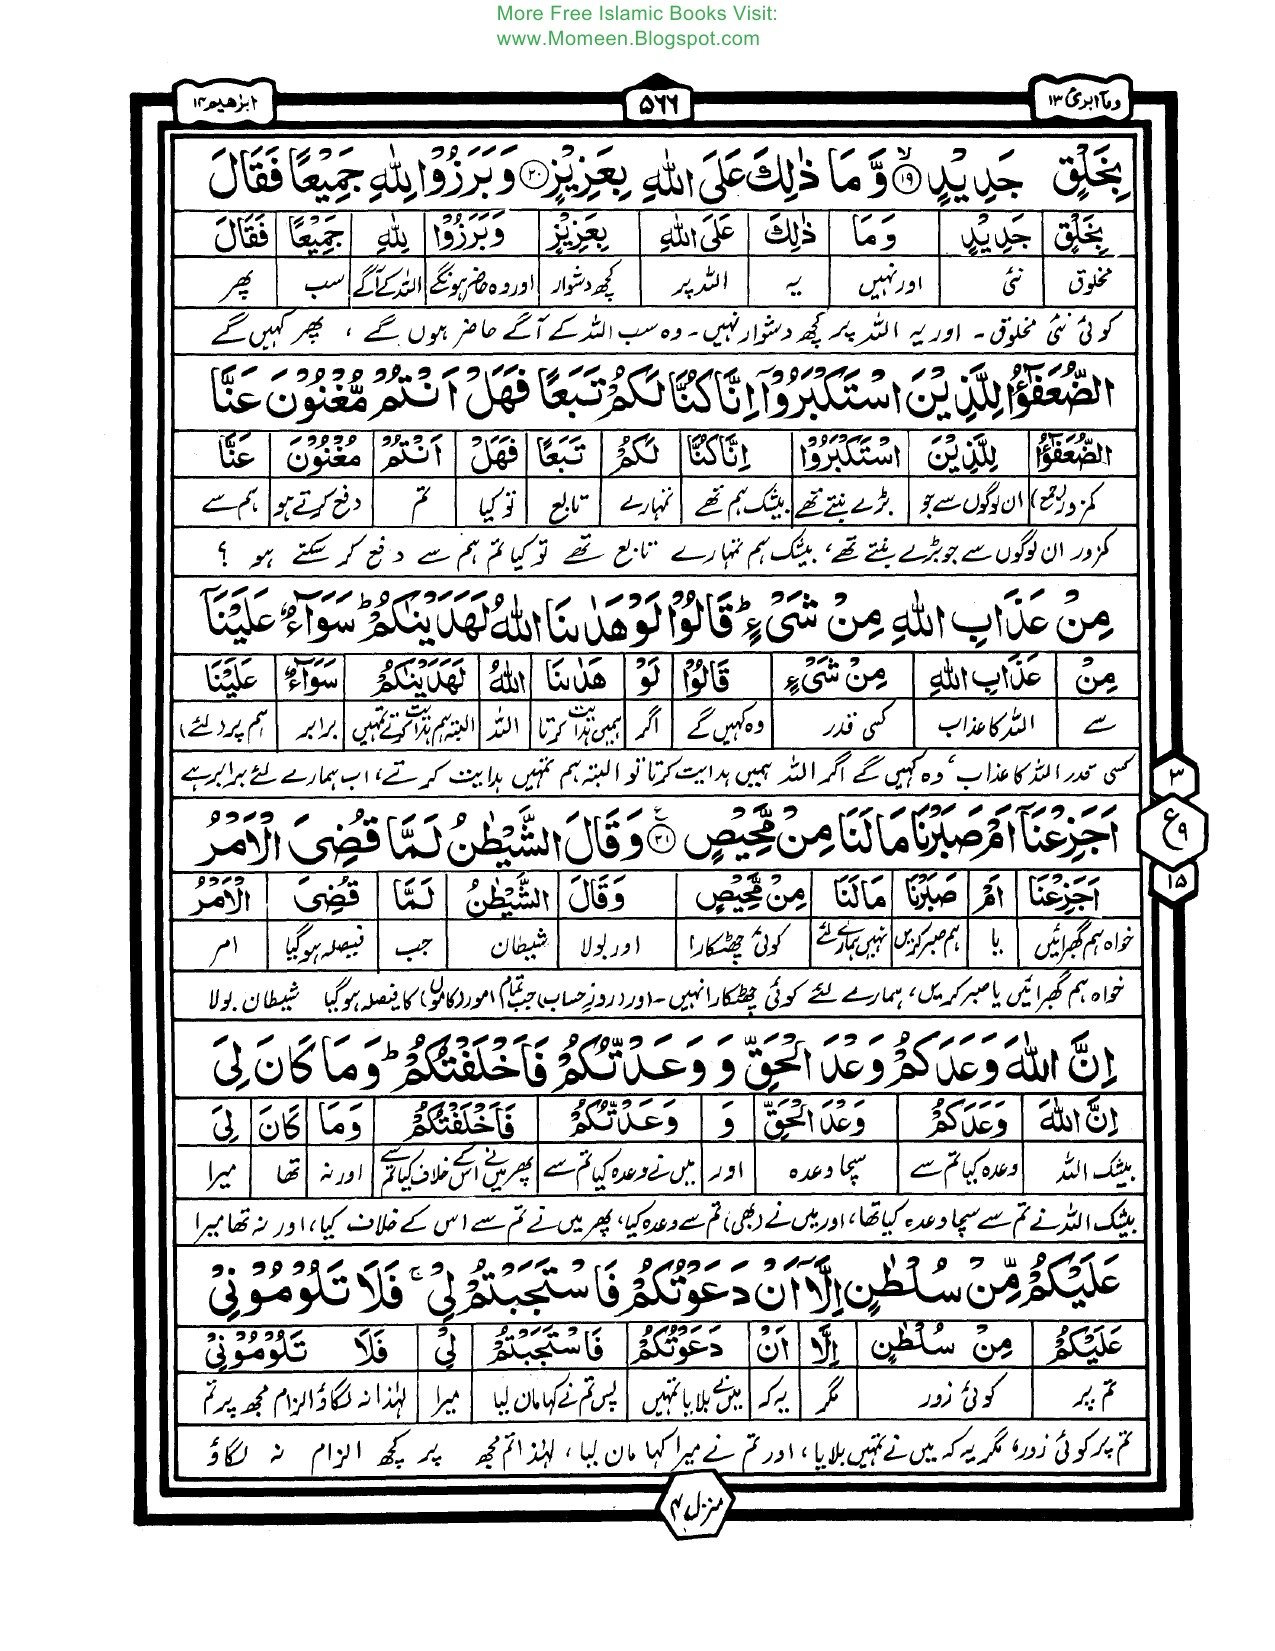 More Free Islamic Books Visit:
www.Momeen.Blogspot.com
ومآ ابرئ ۱۳
۵۶۶
ابرٰهیم ۱۴
بِخَلْقٍ جَدِيْدٍ ۙ﴿۱۹﴾ وَّمَا ذٰلِكَ عَلَى اللّٰهِ بِعَزِيْزٍ ﴿۲۰﴾ وَبَرَزُوْا لِلّٰهِ جَمِيْعًا فَقَالَ
بِخَلْقٍ جَدِيْدٍ وَمَا ذٰلِكَ عَلَى اللّٰهِ بِعَزِيْزٍ وَبَرَزُوْا لِلّٰهِ جَمِيْعًا فَقَالَ
مخلوق نئی اور نہیں یہ اللہ پر کچھ دشوار اور وہ حاضر ہونگے اللہ کے آگے سب پھر
کوئی نئی مخلوق۔ اور یہ اللہ پر کچھ دشوار نہیں۔ وہ سب اللہ کے آگے حاضر ہوں گے ، پھر کہیں گے
الضُّعَفٰٓؤُا لِلَّذِيْنَ اسْتَكْبَرُوْٓا اِنَّا كُنَّا لَكُمْ تَبَعًا فَهَلْ اَنْتُمْ مُّغْنُوْنَ عَنَّا
الضُّعَفٰٓؤُا لِلَّذِيْنَ اسْتَكْبَرُوْا اِنَّا كُنَّا لَكُمْ تَبَعًا فَهَلْ اَنْتُمْ مُغْنُوْنَ عَنَّا
کمزور (جمع) ان لوگوں سے جو بڑے بنتے تھے بیشک ہم تھے تمہارے تابع تو کیا تم دفع کرتے ہو ہم سے
کمزور ان لوگوں سے جو بڑے بنتے تھے، بیشک ہم تمہارے تابع تھے تو کیا تم ہم سے دفع کر سکتے ہو ؟
مِنْ عَذَابِ اللّٰهِ مِنْ شَيْءٍ ؕ قَالُوْا لَوْ هَدٰىنَا اللّٰهُ لَهَدَيْنٰكُمْ ؕ سَوَآءٌ عَلَيْنَآ
مِنْ عَذَابِ اللّٰهِ مِنْ شَيْءٍ قَالُوْا لَوْ هَدٰىنَا اللّٰهُ لَهَدَيْنٰكُمْ سَوَآءٌ عَلَيْنَا
سے اللہ کا عذاب کسی قدر وہ کہیں گے اگر ہمیں ہدایت کرتا اللہ البتہ ہم ہدایت کرتے تمہیں برابر ہم پر (لئے)
کسی قدر اللہ کا عذاب، وہ کہیں گے اگر اللہ ہمیں ہدایت کرتا تو البتہ ہم تمہیں ہدایت کرتے، اب ہمارے لئے برابر ہے
اَجَزِعْنَآ اَمْ صَبَرْنَا مَا لَنَا مِنْ مَّحِيْصٍ ﴿۲۱﴾ وَقَالَ الشَّيْطٰنُ لَمَّا قُضِيَ الْاَمْرُ
اَجَزِعْنَا اَمْ صَبَرْنَا مَا لَنَا مِنْ مَّحِيْصٍ وَقَالَ الشَّيْطٰنُ لَمَّا قُضِيَ الْاَمْرُ
خواہ ہم گھبرائیں یا ہم صبر کریں نہیں ہمارے لئے کوئی چھٹکارا اور بولا شیطان جب فیصلہ ہو گیا امر
خواہ ہم گھبرائیں یا صبر کریں، ہمارے لئے کوئی چھٹکارا نہیں۔ اور (روزِ حساب) جب تمام امور (کاموں) کا فیصلہ ہو گیا شیطان بولا
۳
ع ۹
۱۵
اِنَّ اللّٰهَ وَعَدَكُمْ وَعْدَ الْحَقِّ وَوَعَدْتُّكُمْ فَاَخْلَفْتُكُمْ ؕ وَمَا كَانَ لِيَ
اِنَّ اللّٰهَ وَعَدَكُمْ وَعْدَ الْحَقِّ وَ وَعَدْتُّكُمْ فَاَخْلَفْتُكُمْ وَمَا كَانَ لِيَ
بیشک اللہ وعدہ کیا تم سے سچا وعدہ اور میں نے وعدہ کیا تم سے پھر میں نے اس کے خلاف کیا تم سے اور نہ تھا میرا
بیشک اللہ نے تم سے سچا وعدہ کیا تھا، اور میں نے (بھی) تم سے وعدہ کیا، پھر میں نے تم سے اس کے خلاف کیا، اور نہ تھا میرا
عَلَيْكُمْ مِّنْ سُلْطٰنٍ اِلَّآ اَنْ دَعَوْتُكُمْ فَاسْتَجَبْتُمْ لِيْ ۚ فَلَا تَلُوْمُوْنِيْ
عَلَيْكُمْ مِنْ سُلْطٰنٍ اِلَّا اَنْ دَعَوْتُكُمْ فَاسْتَجَبْتُمْ لِيْ فَلَا تَلُوْمُوْنِيْ
تم پر کوئی زور مگر یہ کہ میں نے بلایا تمہیں پس تم نے کہا مان لیا میرا لہٰذا نہ لگاؤ الزام مجھ پر تم
تم پر کوئی زور، مگر یہ کہ میں نے تمہیں بلایا، اور تم نے میرا کہا مان لیا، لہٰذا تم مجھ پر کچھ الزام نہ لگاؤ
منزل ۳